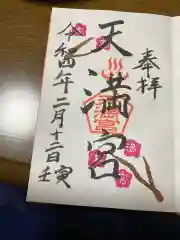 奉拝
天満宮
令和四年二月十二日
壬寅